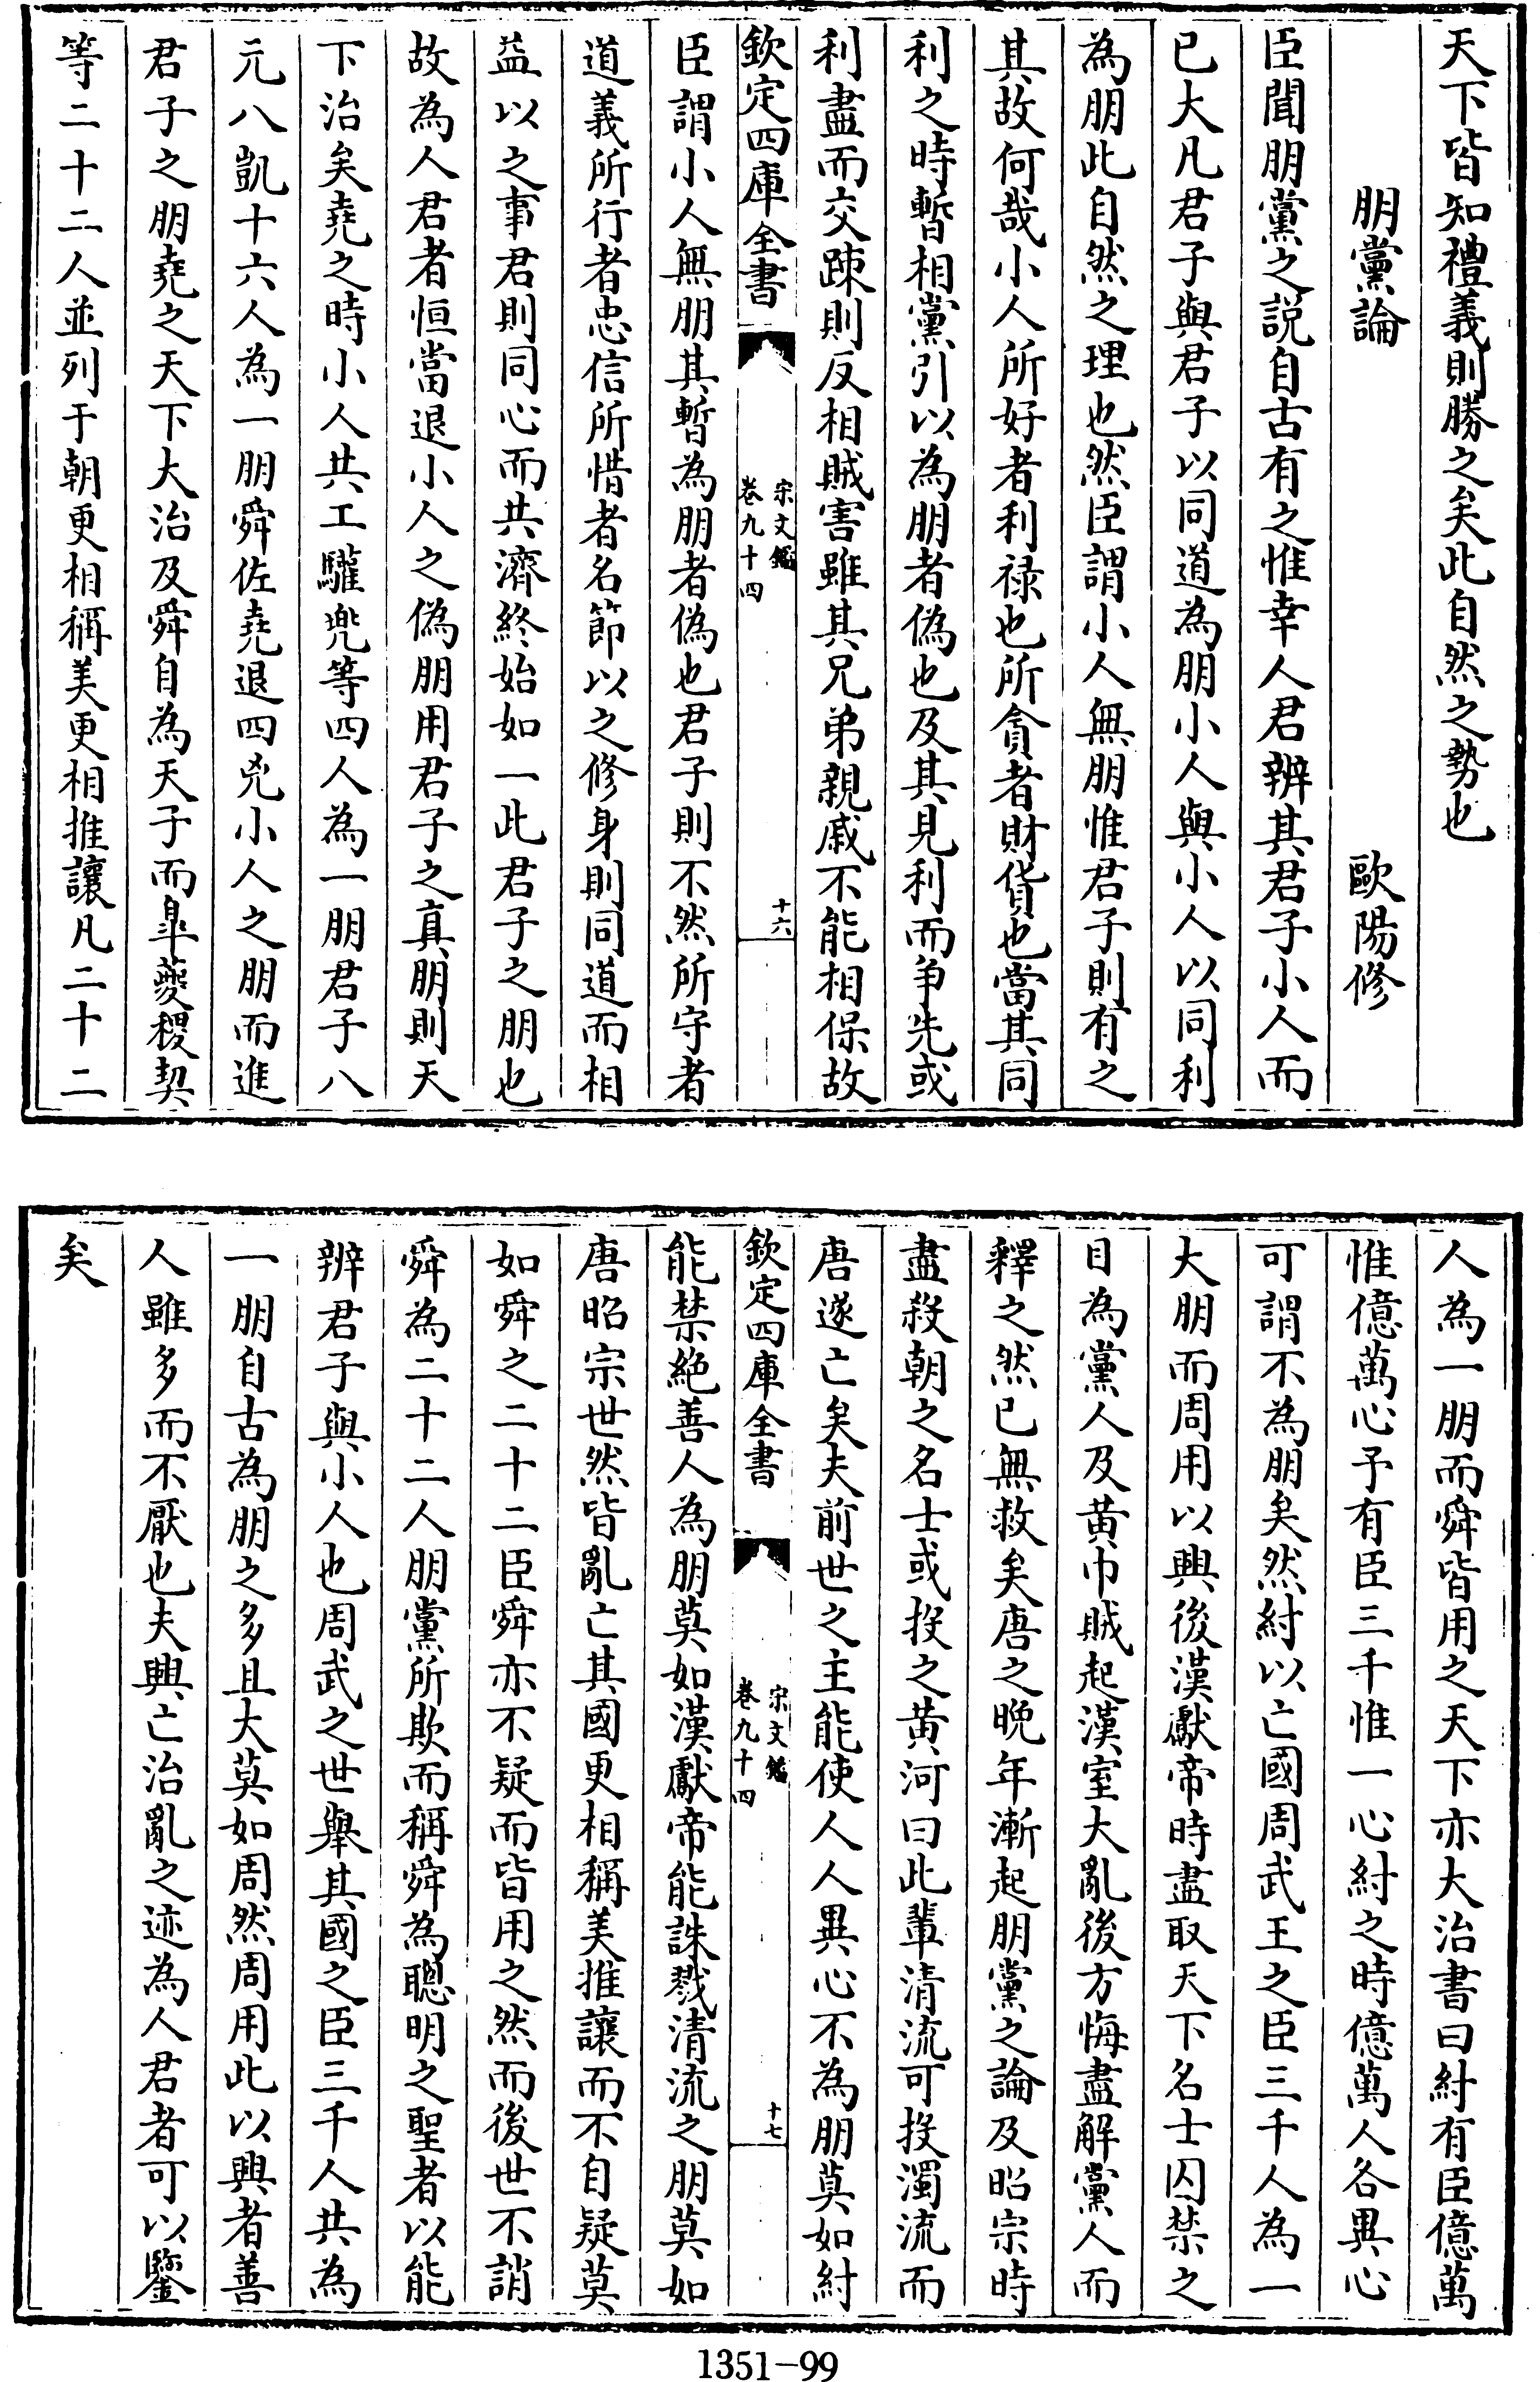 天下皆知禮義則勝之矣此自然之勢也
朋黨論　歐陽修
臣聞朋黨之説自古有之惟幸人君辨其君子小人而
已大凡君子與君子以同道為朋小人與小人以同利
為朋此自然之理也然臣謂小人無朋惟君子則有之
其故何哉小人所好者利禄也所貪者財貨也當其同
利之時暫相黨引以為朋者偽也及其見利而争先或
利盡而交疎則反相賊害雖其兄弟親戚不能相保故
欽定四庫全書
宋文鑑
卷九十四
十六
臣謂小人無朋其暫為朋者偽也君子則不然所守者
道義所行者忠信所惜者名節以之修身則同道而相
益以之事君則同心而共濟終始如一此君子之朋也
故為人君者恒當退小人之偽朋用君子之真朋則天
下治矣堯之時小人共工驩兜等四人為一朋君子八
元八凱十六人為一朋舜佐堯退四兇小人之朋而進
君子之朋堯之天下大治及舜自為天子而臯夔稷契
等二十二人並列于朝更相稱美更相推讓凡二十二
人為一朋而舜皆用之天下亦大治書曰紂有臣億萬
惟億萬心予有臣三千惟一心紂之時億萬人各異心
可謂不為朋矣然紂以亡國周武王之臣三千人為一
大朋而周用以興後漢獻帝時盡取天下名士囚禁之
目為黨人及黄巾賊起漢室大亂後方悔盡解黨人而
釋之然已無救矣唐之晚年漸起朋黨之論及昭宗時
盡殺朝之名士或投之黄河曰此輩清流可投濁流而
唐遂亡矣夫前世之主能使人人異心不為朋莫如紂
欽定四庫全書
宋文鑑
卷九十四
十七
能禁絶善人為朋莫如漢獻帝能誅戮清流之朋莫如
唐昭宗世然皆亂亡其國更相稱美推讓而不自疑莫
如舜之二十二臣舜亦不疑而皆用之然而後世不誚
舜為二十二人朋黨所欺而稱舜為聰明之聖者以能
辨君子與小人也周武之世舉其國之臣三千人共為
一朋自古為朋之多且大莫如周然周用此以興者善
人雖多而不厭也夫興亡治亂之迹為人君者可以鑒
矣
1351-99